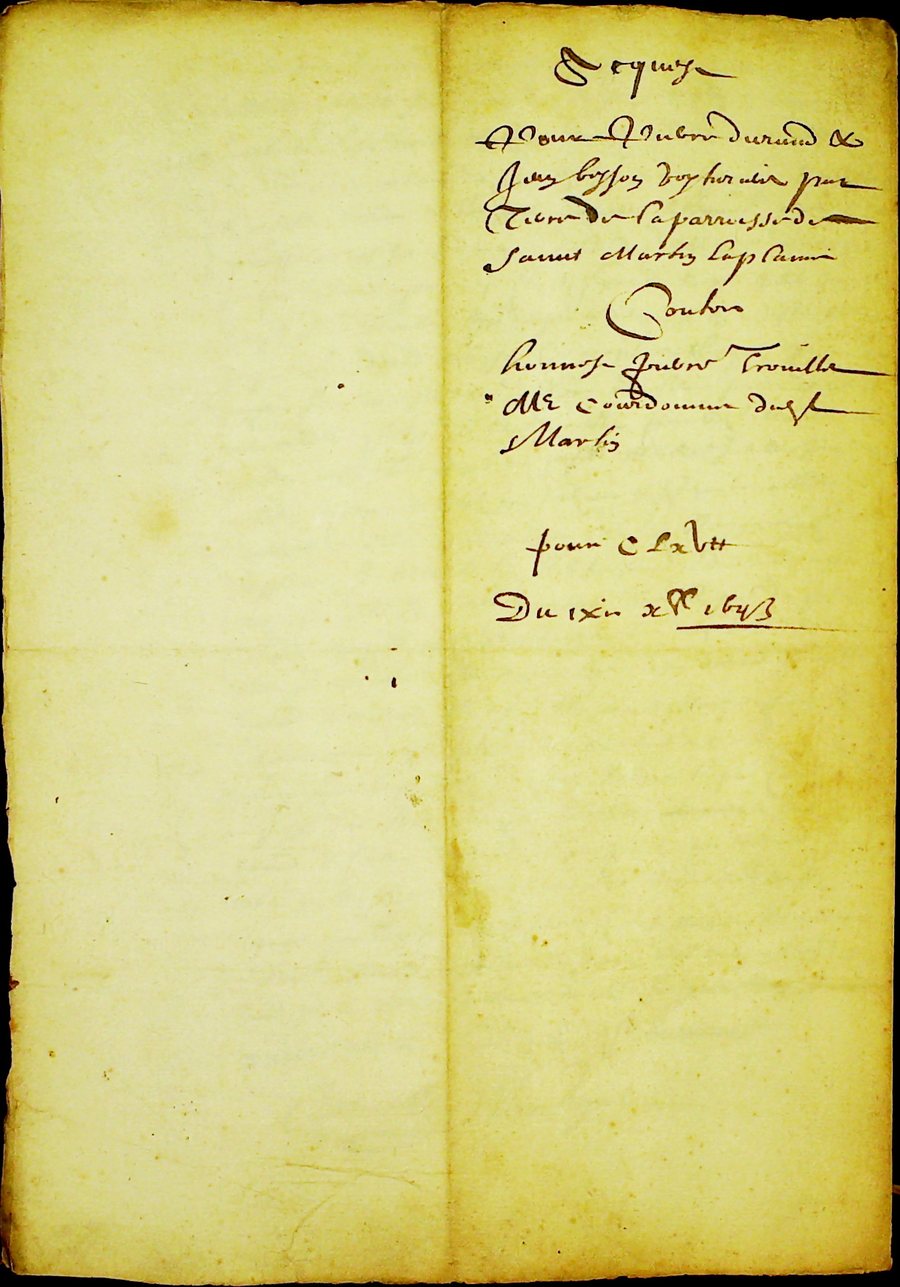 Acquest
Pour Pierre durand &
Jean besson voyturier par
Terre De la parroisse de
Sainct Martin la plaine
Contre
honneste pierre Trouillet
Me Courdonnier dudit
Martin
pour C Lxv tt
Du ixe xbre 1643